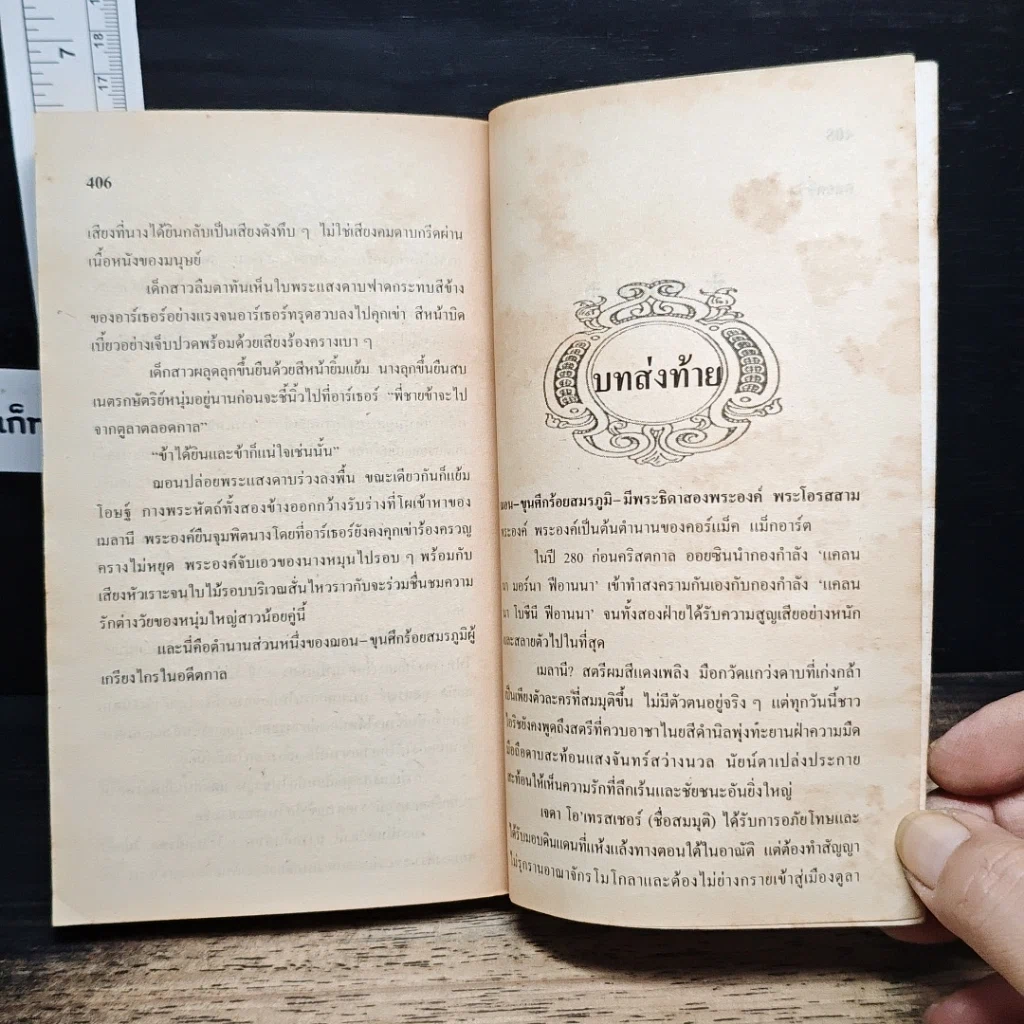 7
18
17
เก็
406
เสียงที่นางได้ยินกลับเป็นเสียงดังทึบ ๆ ไม่ใช่เสียงคมดาบกรีดผ่าน
เนื้อหนังของมนุษย์
เด็กสาวลืมตาทันเห็นใบพระแสงดาบฟาดกระทบสีข้าง
ของอาร์เธอร์อย่างแรงจนอาร์เธอร์ทรุดฮวบลงไปคุกเข่า สีหน้าบิด
เบี้ยวอย่างเจ็บปวดพร้อมด้วยเสียงร้องครางเบา ๆ
เด็กสาวผลุดลุกขึ้นยืนด้วยสีหน้ายิ้มแย้ม นางลุกขึ้นยืนสบ
เนตรกษัตริย์หนุ่มอยู่นานก่อนจะชี้นิ้วไปที่อาร์เธอร์ “พี่ชายข้าจะไป
จากตูลาตลอดกาล”
“ข้าได้ยินและข้าก็แน่ใจเช่นนั้น”
ฌอนปล่อยพระแสงดาบร่วงลงพื้น ขณะเดียวกันก็แย้ม
โอษฐ์ กางพระหัตถ์ทั้งสองข้างออกกว้างรับร่างที่โผเข้าหาของ
เมลานี พระองค์ยืนจุมพิตนางโดยที่อาร์เธอร์ยังคงคุกเข่าร้องครวญ
ครางไม่หยุด พระองค์จับเอวของนางหมุนไปรอบ ๆ พร้อมกับ
เสียงหัวเราะจนใบไม้รอบบริเวณสั่นไหวราวกับจะร่วมชื่นชมความ
รักต่างวัยของหนุ่มใหญ่สาวน้อยคู่นี้
และนี่คือตำนานส่วนหนึ่งของฌอน–ขุนศึกร้อยสมรภูมิผู้
เกรียงไกรในอดีตกาล
บทส่งท้าย
ฌอน–ขุนศึกร้อยสมรภูมิ–มีพระธิดาสองพระองค์ พระโอรสสาม
พระองค์ พระองค์เป็นต้นตำนานของคอร์แม็ค แม็กอาร์ต
ในปี 280 ก่อนคริสตกาล ออยซินนำกองกำลัง ‘แคลน
นา มอร์นา ฟีอานนา’ เข้าทำสงครามกันเองกับกองกำลัง ‘แคลน
นา โบชีนี ฟีอานนา’ จนทั้งสองฝ่ายได้รับความสูญเสียอย่างหนัก
และสลายตัวไปในที่สุด
เมลานี? สตรีผมสีแดงเพลิง มือกวัดแกว่งดาบที่เก่งกล้า
เป็นเพียงตัวละครที่สมมุติขึ้น ไม่มีตัวตนอยู่จริง ๆ แต่ทุกวันนี้ชาว
ไอริชยังคงพูดถึงสตรีที่ควบอาชาไนยสีดำนิลพุ่งทะยานฝ่าความมืด
มือถือดาบสะท้อนแสงจันทร์สว่างนวล นัยน์ตาเปล่งประกาย
สะท้อนให้เห็นความรักที่ลึกเร้นและชัยชนะอันยิ่งใหญ่
เจดา โอ'เทรสเชอร์ (ชื่อสมมุติ) ได้รับการอภัยโทษและ
ได้รับมอบดินแดนที่แห้งแล้งทางตอนใต้ในอาณัติ แต่ต้องทำสัญญา
ไม่รุกรานอาณาจักรโมโกลาและต้องไม่ย่างกรายเข้าสู่เมืองตูลา